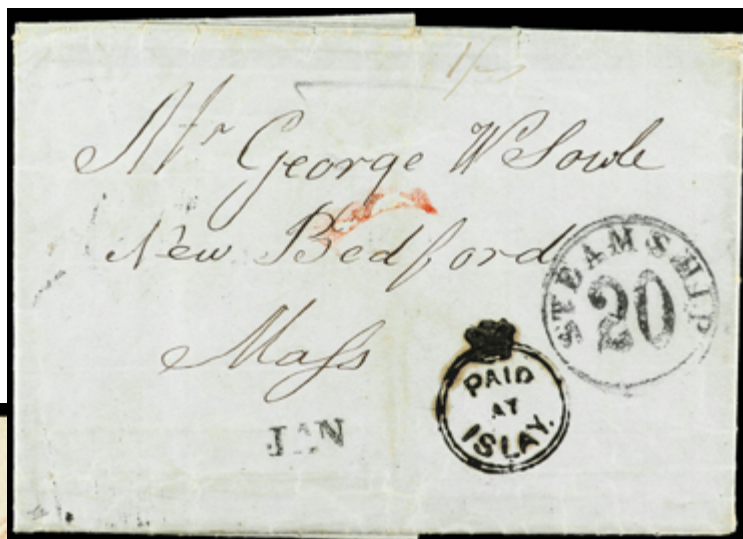 1/-
Mr George W Sowle
New Bedford
Mass
STEAMSHIP
20
PAID
AT
ISLAY.
JAN